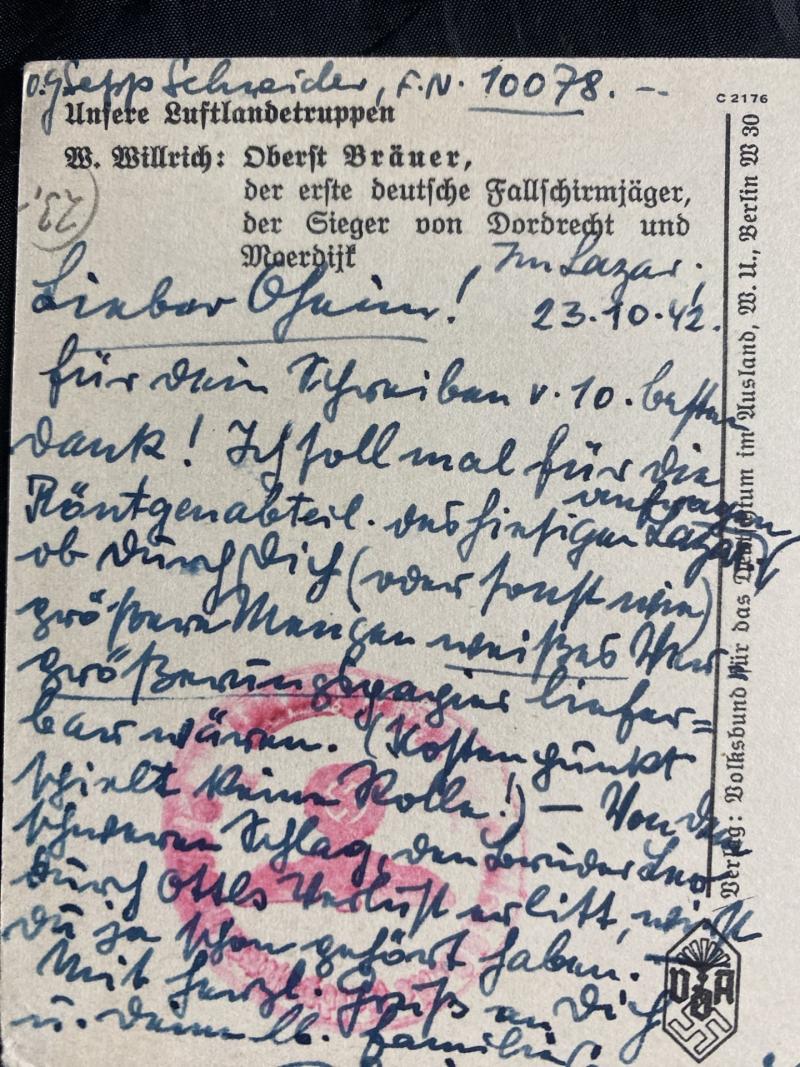 O.G. Sepp Schneider, F.N. 10078. -
C 2176
Unsere Luftlandetruppen
W. Willrich: Oberst Bräuer,
der erste deutsche Fallschirmjäger,
der Sieger von Dordrecht und
Moerdijk
23,
Im Lazar.,
Lieber Oheim!
23.10.42.
für dein Schreiben v. 10. besten
dank! Ich soll mal für die
Röntgenabteil. des hiesigen Lazar.
anfragen
ob durch Dich (oder sonst wie)
größere Mengen weißes Ver
größerungspapier liefer=
bar wären. (Kostenpunkt
spielt keine Rolle!) — Von dem
schweren Schlag, den Bruder Leo
durch Ottls Verlust erlitt, wirst
Du ja schon gehört haben. —
Mit herzl. Gruß an Dich
u. deine lb. Familie
Verlag: Volksbund für das Deutschtum im Ausland, W. U., Berlin W 30
VDA